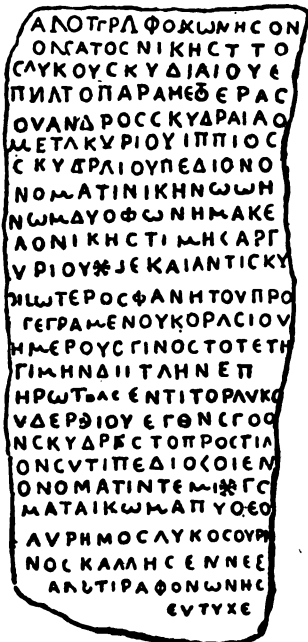 ΑΛΟΤΓΡΛΦΟΧΩΝΗCΟΝ
ΟΛΓΑΤΟCΝΙΚΗCΤΤΟ
CΛΥΚΟΥCΚΥΔΙΑΙΟΥΕ
ΠΙΛΤΟΠΑΡΑΗΕΔΕΡΑC
ΟΥΑΝΔΡΟCCΚΥΔΡΑΙΑΟ
ΜΕΤΛΚΥΡΙΟΥΙΠΠΙΟC
CΚΥΔΡΛΙΟΥΠΕΔΙΟΝΟ
ΝΟΜΑΤΙΝΙΚΗΝΩΩΗ
ΝΩΜΔΥΟΦΩΝΗΜΑΚΕ
ΛΟΝΙΚΗCΤΙΜΗCΑΡΓ
ΥΡΙΟΥ⚹JΕΚΑΙΑΝΤΙCΚΥ
ΗΩΤΕΡΟCΦΑΝΗΤΟΥΠΡΟ
ΓΕΓΡΑΜΕΝΟΥΚΟΡΛCΙΟΥ
ΗΜΕΡΟΥCΓΙΝΟCΤΟΤΕΤΗ
ΓΙΜΗΝΔΙΙΤΛΗΝΕΠ
ΗΡΩΤΘΛCΕΝΤΙΤΟΡΛΥΚΟ
ΥΔΕΡΘΙΟΥΕΓΘΝCΓΟΟ
ΝCΚΥΔΡΕCΤΟΠΡΟCΤΙΛ
ΟΝCΥΤΙΠΕΔΙΟCΟΙΕΝ
ΟΝΟΜΑΤΙΝΤΕΜΙ⚹ΓC
ΜΑΤΑΙΚΩΜΑΠΥΟΘΟ
ΛΥΡΗΜΟCΛΥΚΟCΟΥΡΗ
ΝΟCΚΑΛΛΗCΕΝΝΕΕ
ΑΝΤΙΡΑΦΟΝΩΝΗC
ΕΥΤΥΧΕ